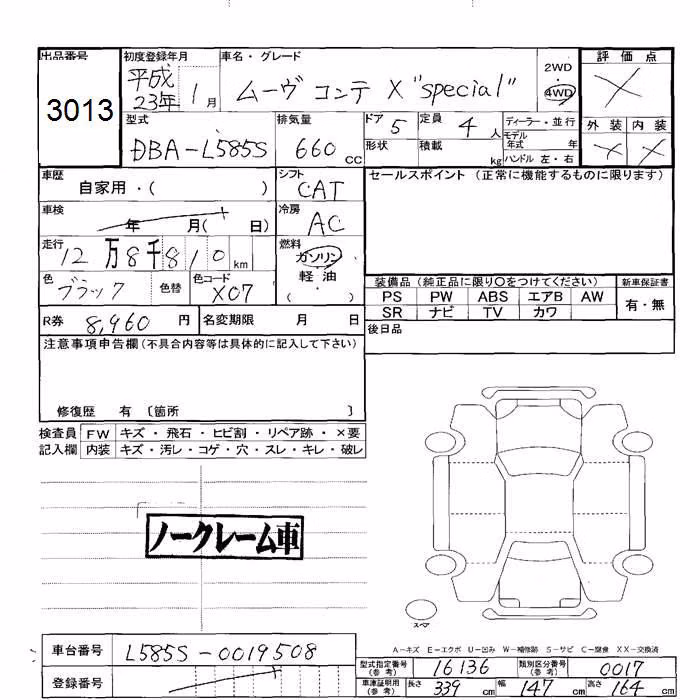 出品番号
3013
初度登録年月
平成
23年 1月
車名・グレード
ムーヴ コンテ X "special"
2WD
4WD
評価点
型式
DBA-L585S
排気量
660 cc
ドア 5
定員 4人
ディーラー・並行
形状
積載 kg
モデル年式 年
ハンドル 左・右
外装 内装
車歴
自家用・( )
シフト
CAT
セールスポイント (正常に機能するものに限ります)
車検
年 月( 日)
冷房
AC
走行
12万8千810km
燃料
ガソリン
軽油
( ・ )
色
ブラック
色替
色コード
X07
装備品 (純正品に限り○をつけてください)
新車保証書
PS PW ABS エアB AW
SR ナビ TV カワ
有・無
R券 8,960 円
名変期限 月 日
後日品
注意事項申告欄 (不具合内容等は具体的に記入して下さい)
修復歴 有 〔箇所 〕
検査員 FW キズ・飛石・ヒビ割・リペア跡・×要
記入欄 内装 キズ・汚レ・コゲ・穴・スレ・キレ・破レ
ノークレーム車
スペア
A-キズ E-エクボ U-凹み W-補修跡 S-サビ C-腐食 XX-交換済
車台番号 L585S-0019508
登録番号
型式指定番号(参考) 16136
類別区分番号(参考) 0017
車庫証明用(参考) 長さ 339 cm 幅 147 cm 高さ 164 cm